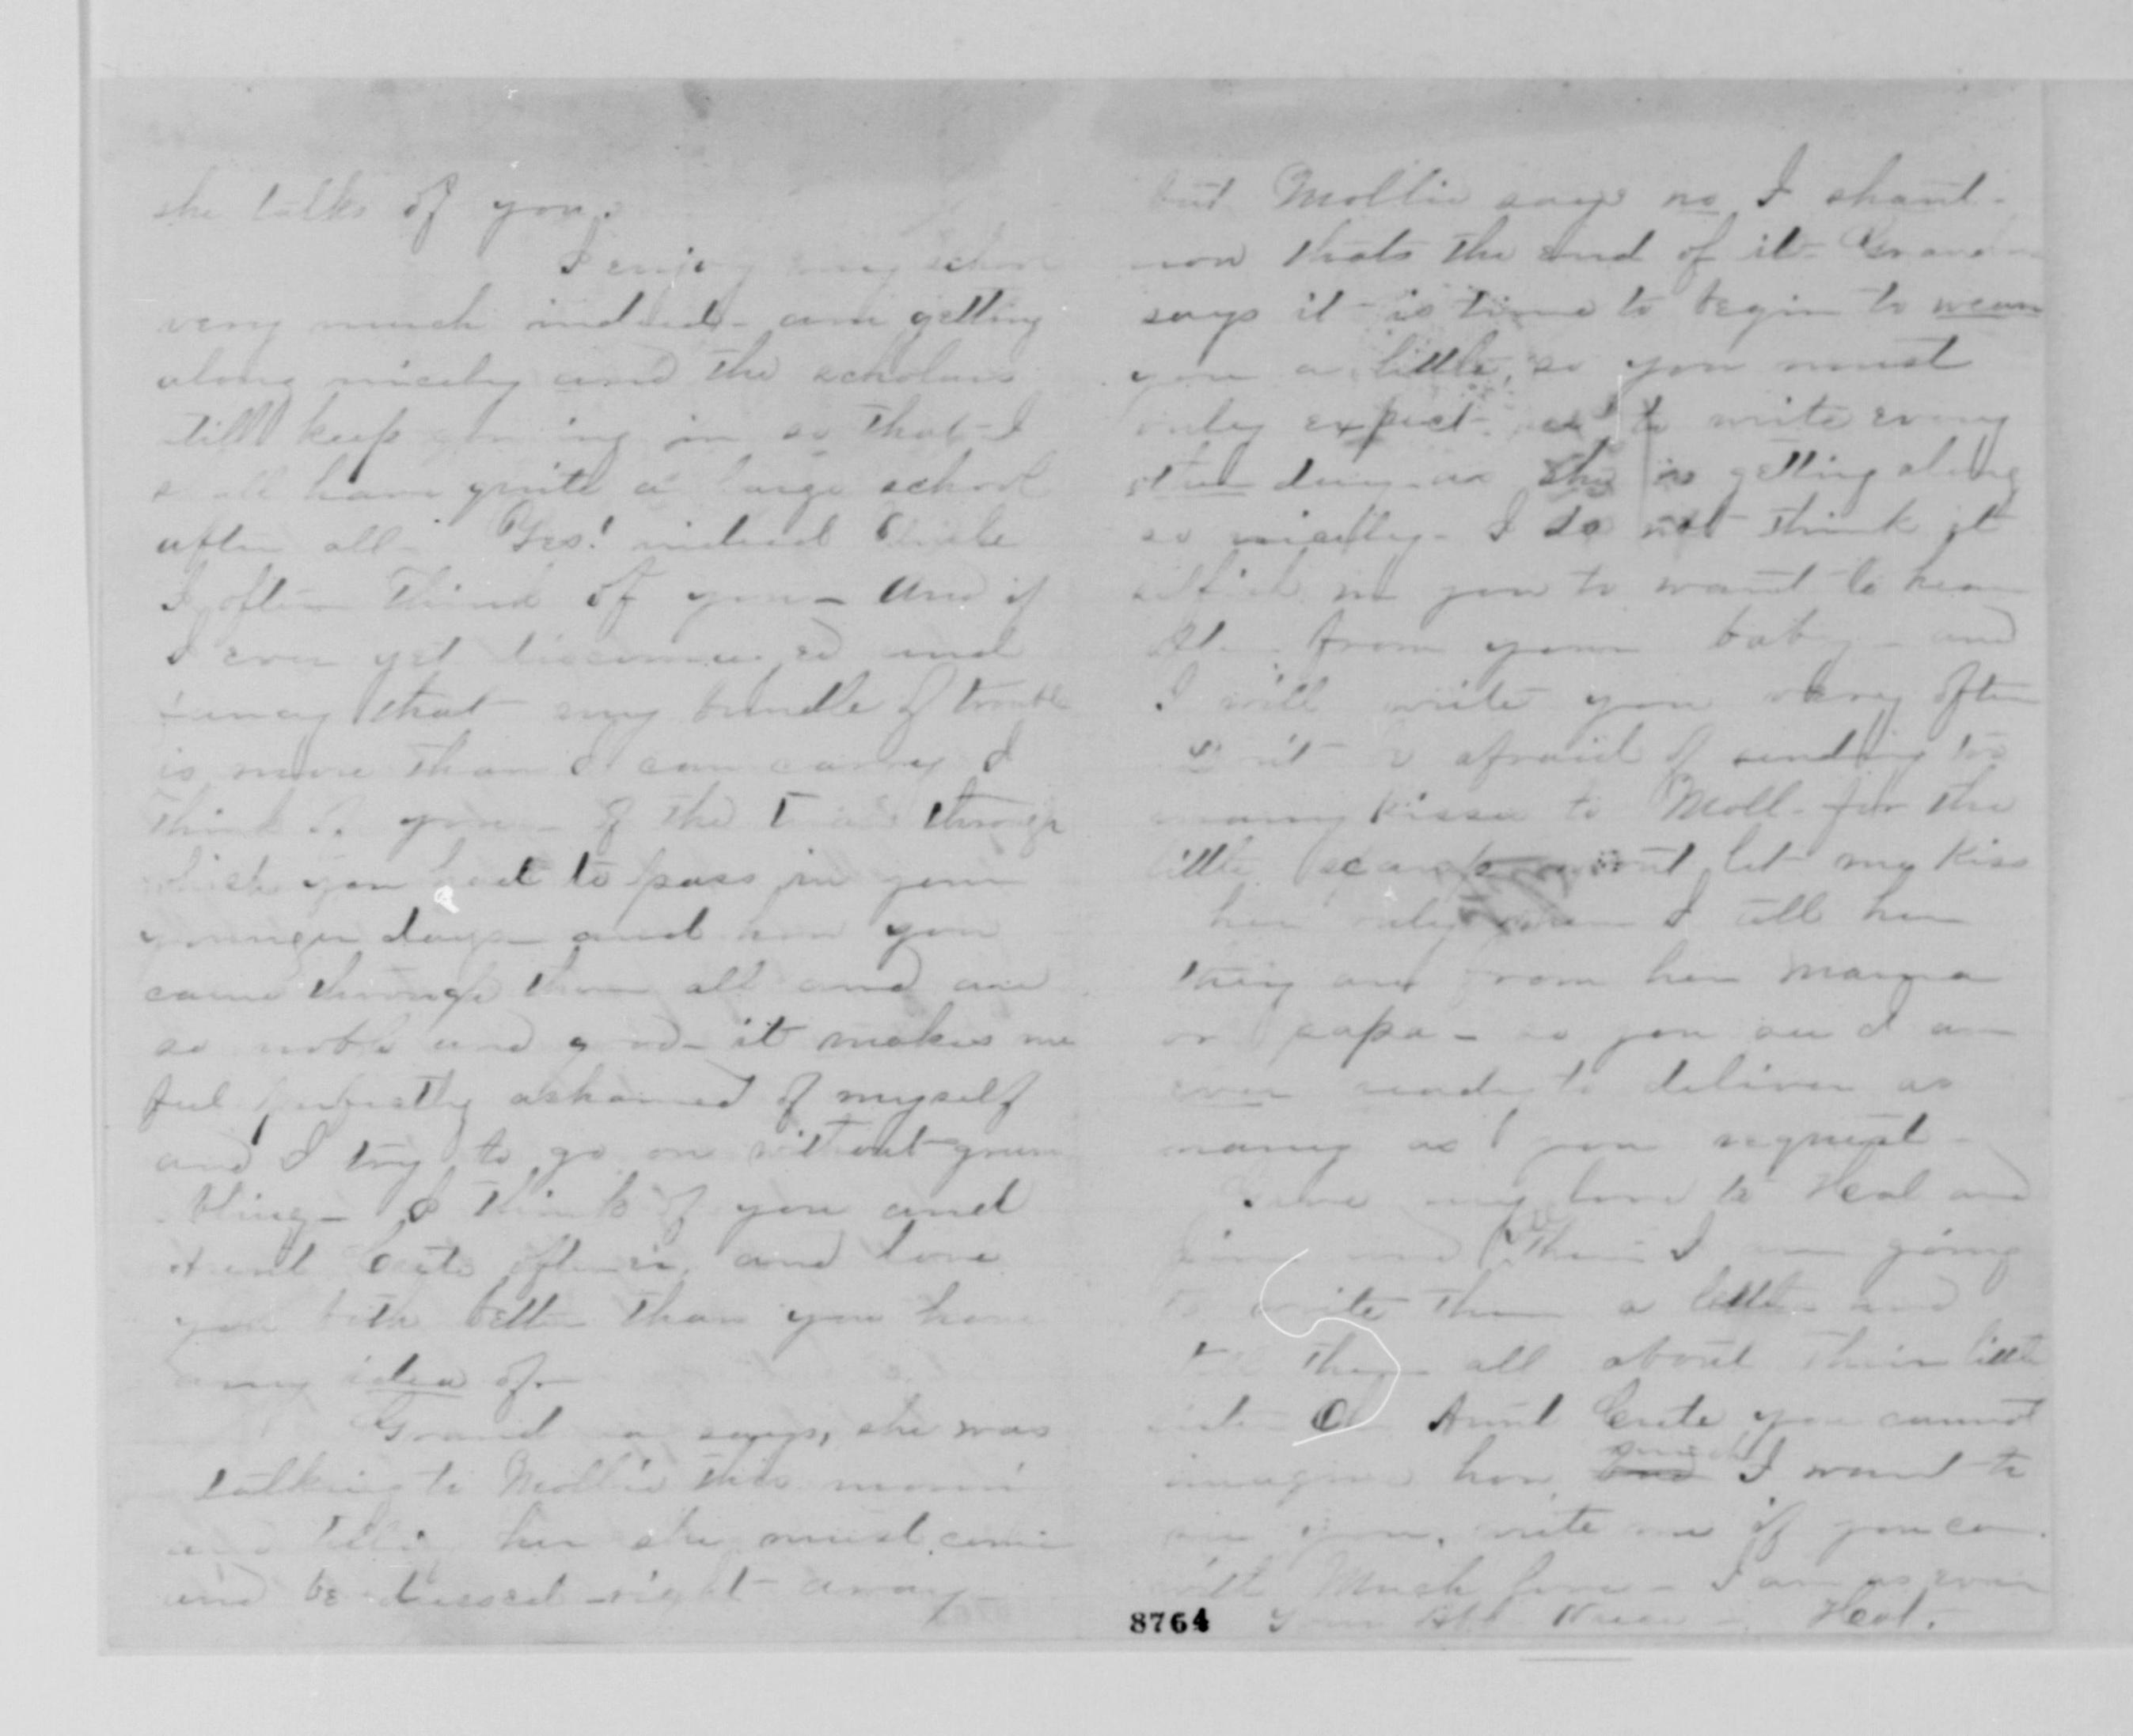 she talks of you.
I enjoy my school
very much indeed - am getting
along nicely and the scholars
still keep coming in so that I
shall have quite a large school
after all - Yes! indeed Uncle
I often think of you - and if
I ever get discouraged and
fancy that my bundle of trouble
is more than I can carry I
think of you - of the trials through
which you had to pass in your
younger days and how you
came through them all and are
so noble and good - it makes me
feel perfectly ashamed of myself
and I try to go on without grum
bling - I think of you and
Aunt Crete often and love
you both better than you have
any idea of -
Grandma says, she was
talking to Mollie this morning
and telling her she must come
and be dressed right away -
but Mollie says no I shant -
now thats the end of it - Grandma
says it is time to begin to wean
you a little, so you must
only expect us to write every
other day - as she is getting along
so nicely - I do not think it
selfish in you to want to hear
from your baby - and
I will write you very often
Don't be afraid of sending too
many kisses to Moll - for the
little scamp wont let me kiss
her only when I tell her
they are from her mama
or papa - so you see I am
ever ready to deliver as
many as you request -
Give my love to Hal and
Jim and tell them I am going
to write them a letter and
tell them all about their little
sister Oh Aunt Crete you cannot
imagine how much I want to
see you. write me if you can.
with Much love - I am as ever
Your Aff. Niece - Hal.
8764